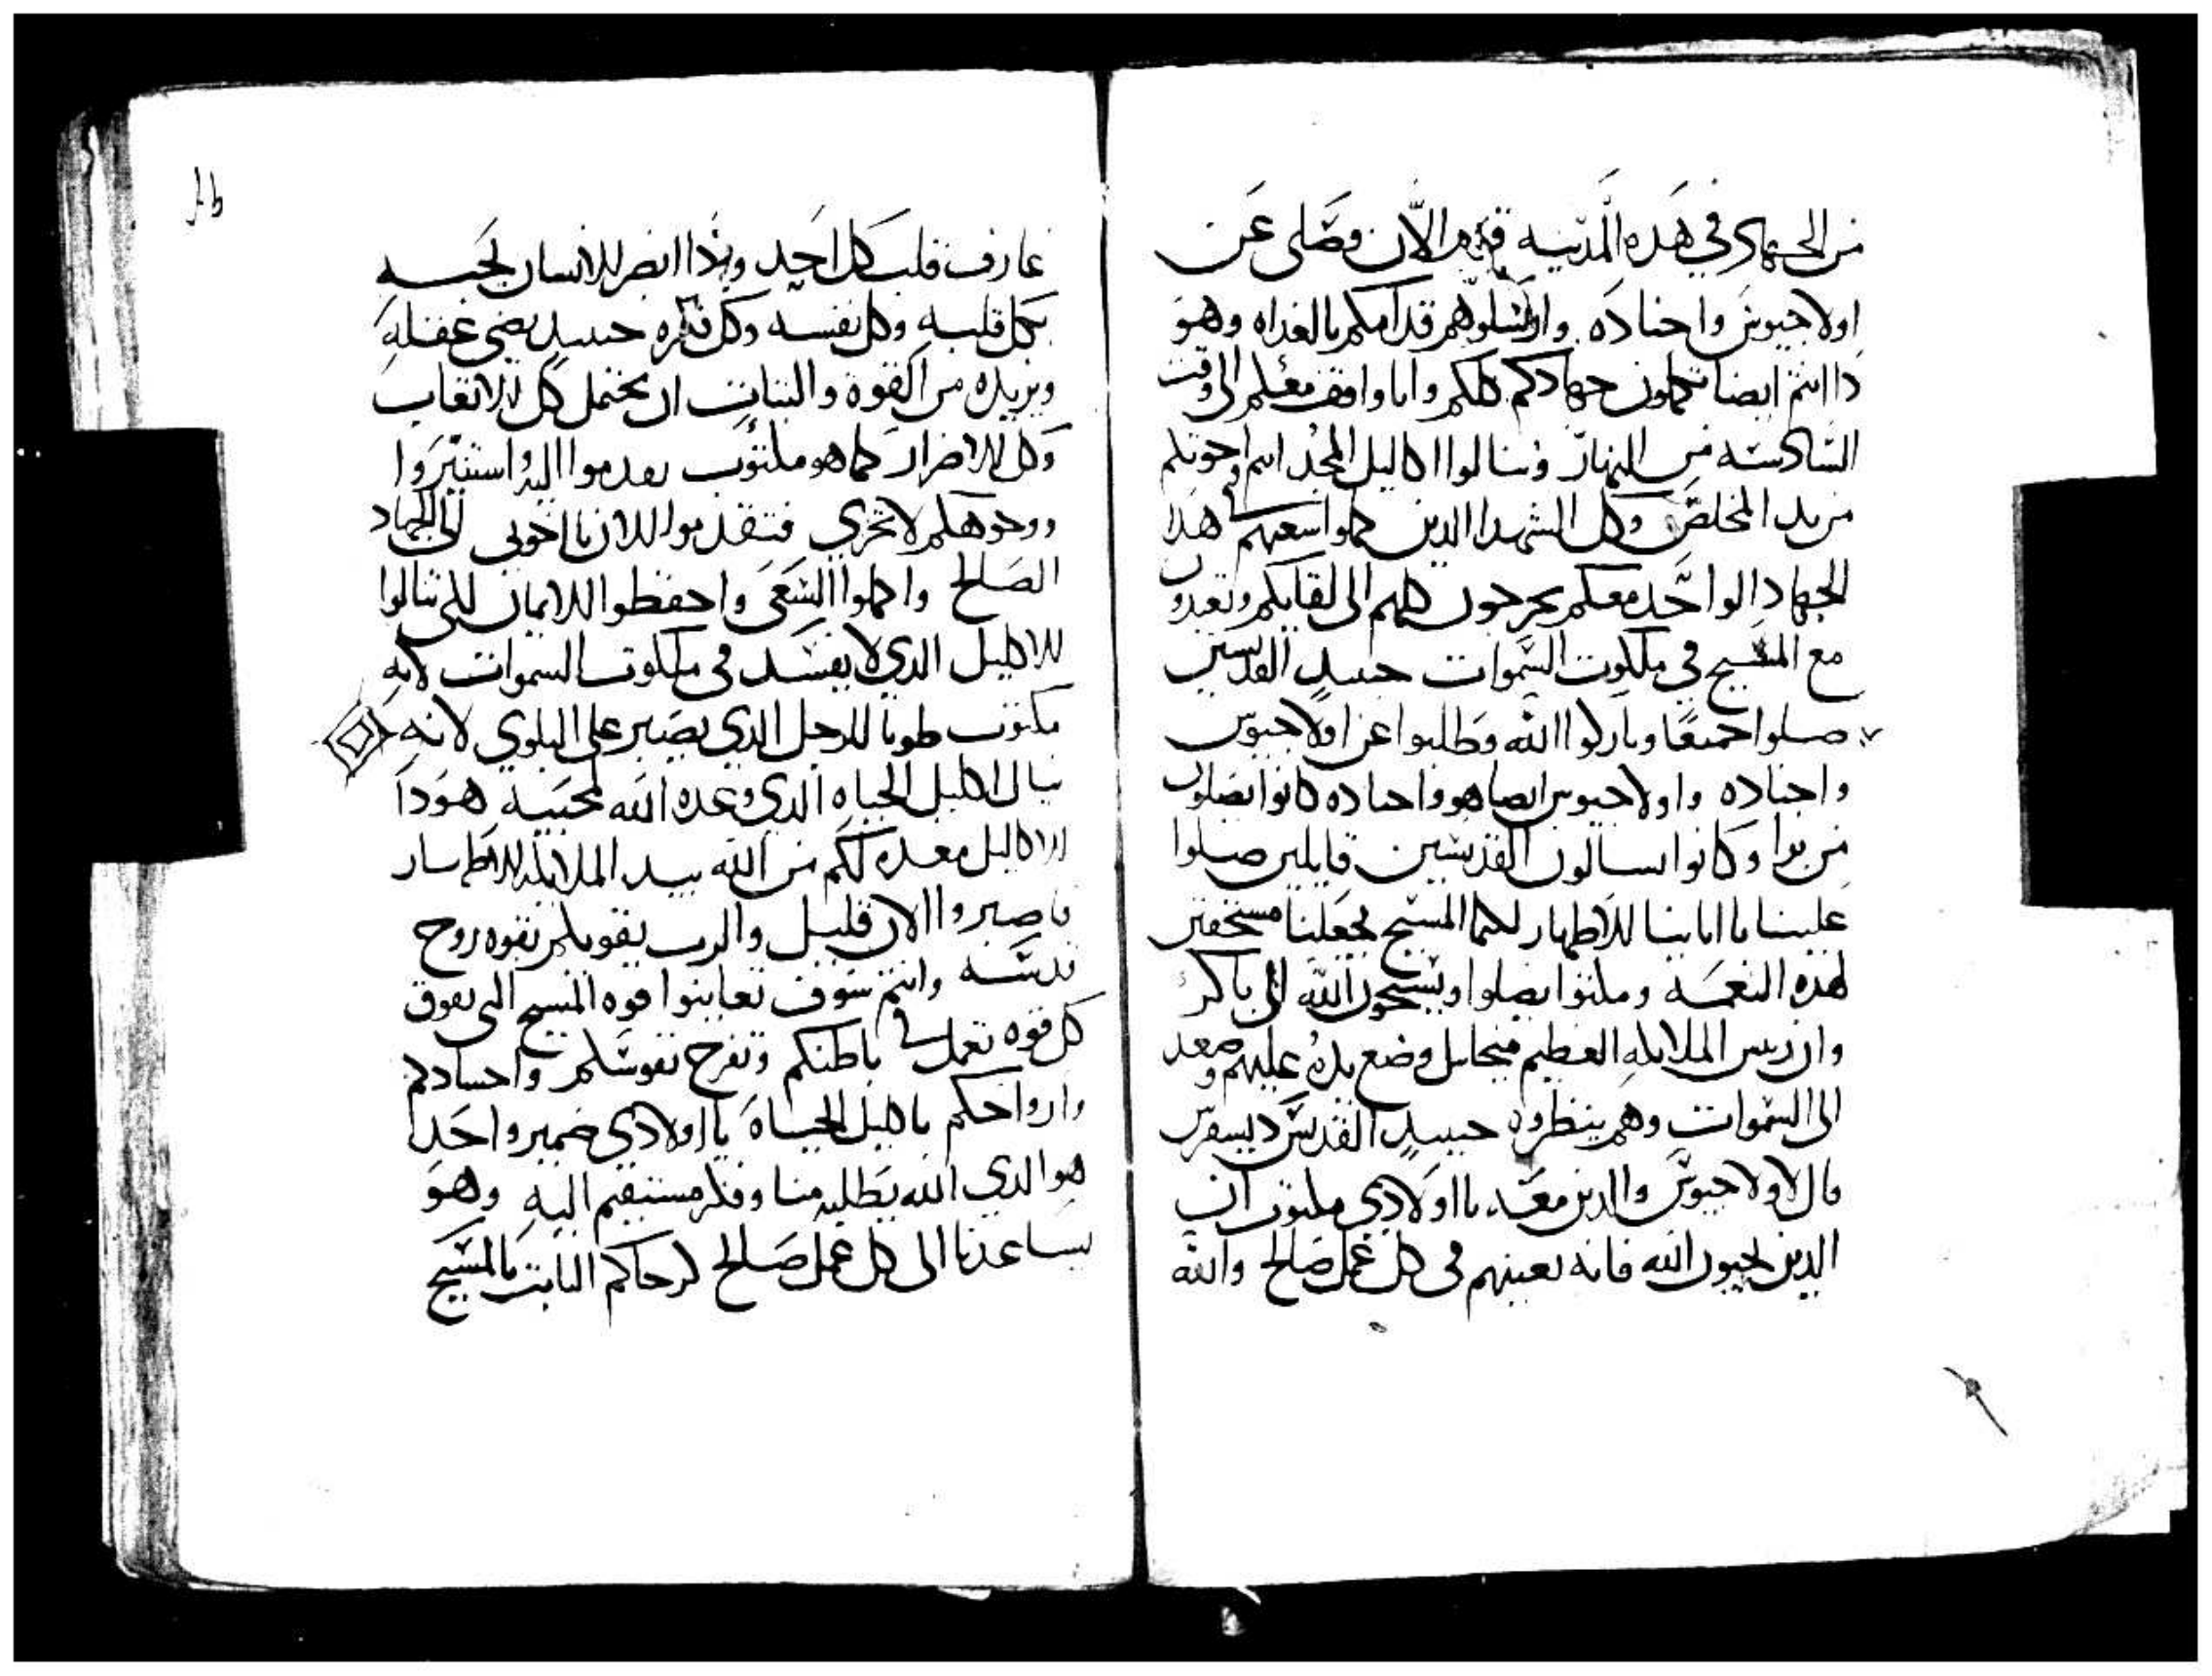 من الجهاد في هده المدينه قوم الآن وصلى عن
اولاجيوش واجناده وارسلوهم قدامكم بالغداه وهو
دا انتم ايضا تكملون جهادكم كلكم وانا واقف معكم الى وقت
السادسه من النهار وتنالوا اكاليل المجد انتم واخوتكم
من يد المخلص وكل الشهدا الدين كملوا سعيهم في هدا
الجهاد الواحد معكم يخرجون كلهم الى لقايكم وتعيدون
مع المسيح في ملكوت السموات حينيد القديسين
صلوا جميعا وباركوا الله وطلبوا عن اولاجيوس
واجناده واولاجيوس ايضا هو واجناده كانوا يصلون
من برا وكانوا يسالون القديسين قايلين صلوا
علينا يا اباينا الاطهار لكما المسيح يجعلنا مستحقين
لهده النعمه ومكتوا يصلوا ويسبحون الله الى باكر
وان ريس الملايكه العظيم ميخاييل وضع يده عليهم وصعد
الى السموات وهم ينظروه حينيد القديس ديسقرس
قال لاولاجيوس والدين معه يا اولادي مكتوب ان
الدين يحبون الله فانه يعينهم في كل عمل صالح والله
عارف قلب كل احد وادا ابصر الانسان يحبه
بكل قلبه وكل نفسه وكل فكره حينيد يضي عقله
ويزيده من القوة والتبات ان يحتمل كل الاتعاب
وكل الاضرار كما هو مكتوب تقدموا اليه واستنيروا
ووجوهكم لا تخزي فتقدموا الان يا اخوتي الى الجهاد
الصالح واكملوا السعى واحفظوا الايمان لكي تنالوا
الاكليل الدي لا يفسد في ملكوت السموات لانه
مكتوب طوبا للرجل الدي يصبر على البلوي لانه
ينال اكليل الحياه الدي وعده الله لمحبيه هودا
الاكاليل معده لكم من الله بيد الملايكه الاطهار
فاصبروا الان قليل والرب يقويكم بقوه روح
قدسه وانتم سوف تعاينوا قوه المسيح التي تفوق
كل قوه تعمل في باطنكم وتفرح نفوسكم واجسادكم
وارواحكم باكليل الحياة يا اولادي ضمير واحد
هو الدي الله يطلبه منا وفكر مستقيم اليه وهو
يساعدنا الى كل عمل صالح لرجاكم التابت بالمسيح